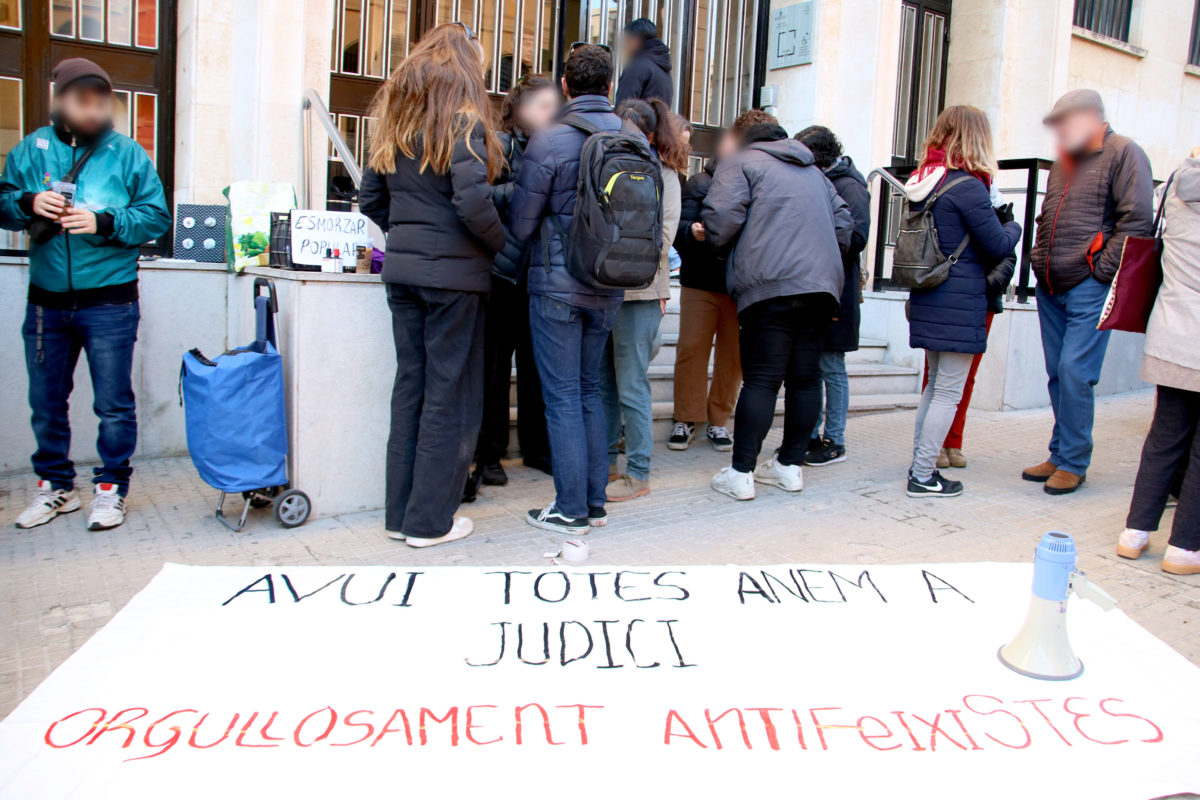 ESMORZAR
POPULAR
Targus
AVUI TOTES ANEM A
JUDICI
ORGULLOSAMENT ANTIFEIXISTES